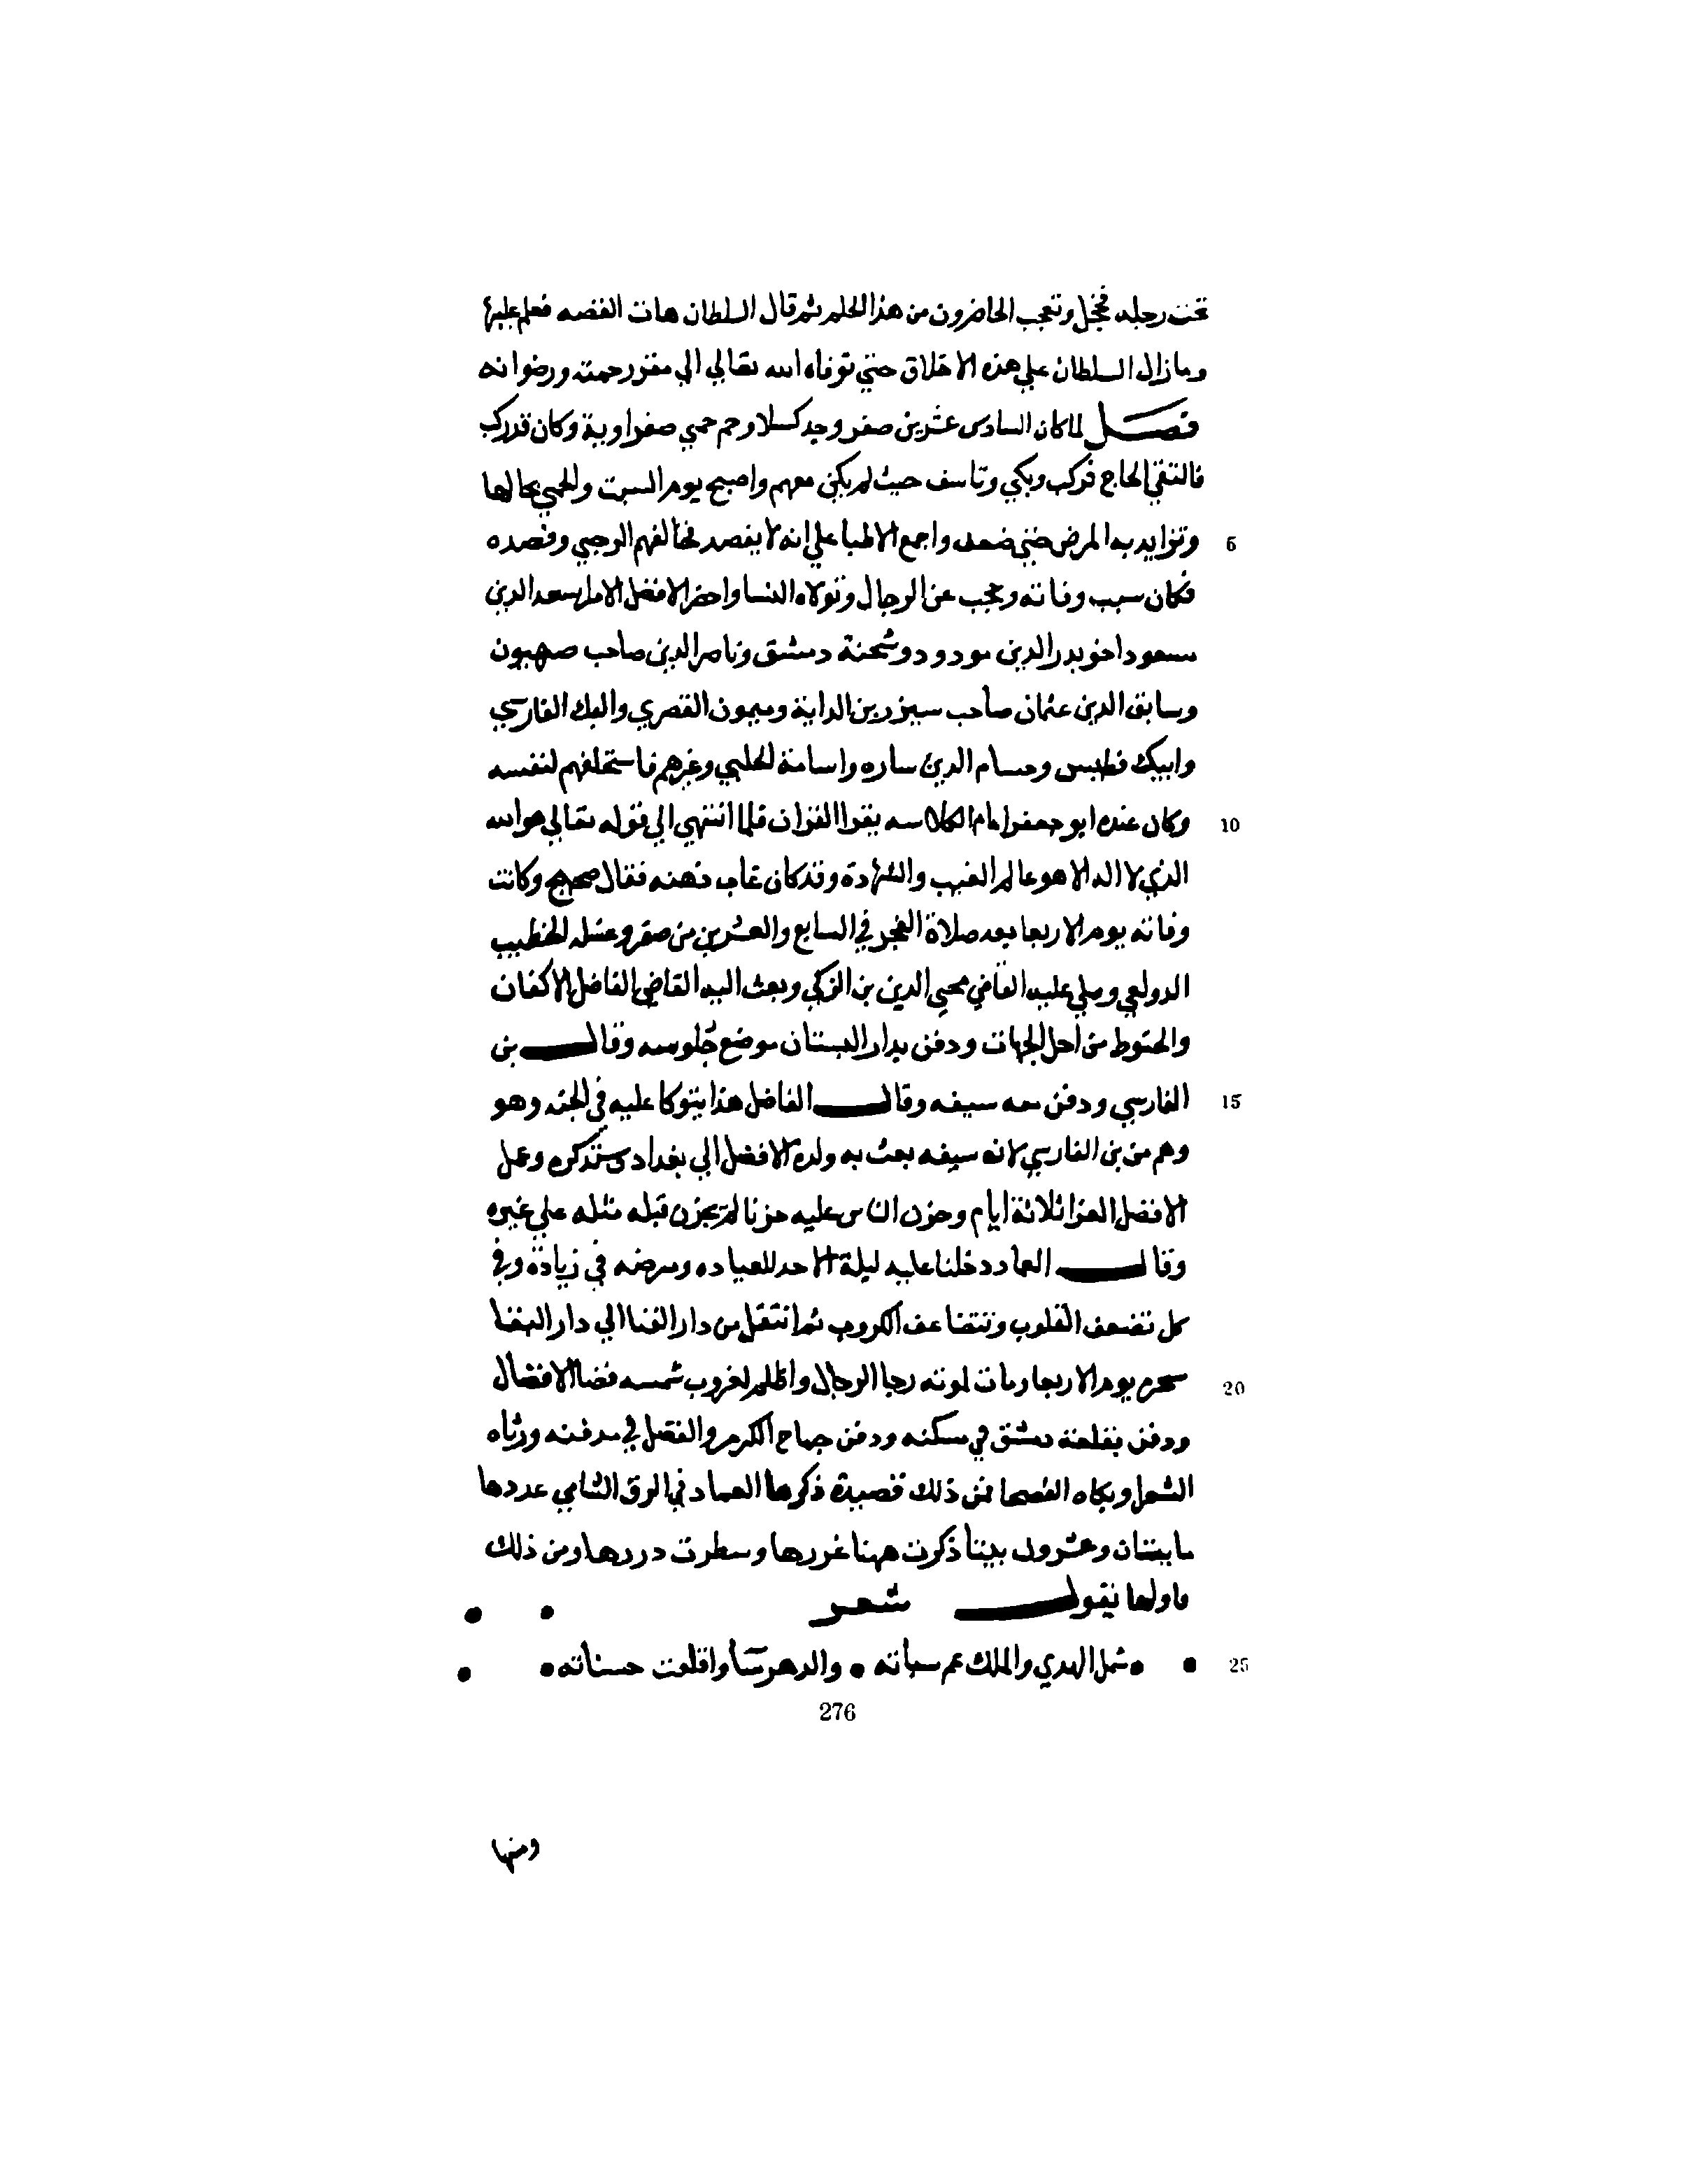 تحت رجليه فخجل وتعجب الحاضرون من هذا الحلم ثم قال السلطان هات القصه فعلم عليها
وما زال السلطان علي هذه الاخلاق حتي توفاه الله تعالي الي مقر رحمته ورضوانه
فصل لما كان السادس عشر من صفر وجد كسلا وحم حمي صفراوية وكان قد ركب
فالتقي الحاج فركب وبكي وتاسف حيث لم يكن معهم واصبح يوم السبت والحمي بحالها
5 وتزايد به المرض حتي ضعف واجمع الاطبا علي انه لا يفصد فخالفهم الرحبي وفصده
فكان سبب وفاته وحجب عن الرجال وتولاه النسا واحضر الافضل الامرا سعد الدين
مسعود اخو بدر الدين مودود وشحنة دمشق وناصر الدين صاحب صهيون
وسابق الدين عثمان صاحب سيزر بن الداية وميمون القصري والبك الفارسي
وايبك فطيس وحسام الدين ساره واسامة الحلبي وغيرهم فاستحلفهم لنفسه
10 وكان عنده ابو جعفر امام الكلاسه يقرا القران فلما انتهي الي قوله تعالي هو الله
الذي لا اله الا هو عالم الغيب والشهادة وقد كان غاب ذهنه فقال صحيح وكانت
وفاته يوم الاربعا بعد صلاة الفجر في السابع والعشرين من صفر وغسله الخطيب
الدولعي وصلي عليه القاضي محيي الدين بن الزكي وبعث اليه القاضي الفاضل الاكفان
والحنوط من احل الجهات ودفن بدار البستان موضع جلوسه وقال بن
15 الفارسي ودفن معه سيفه وقال الفاضل هذا يتوكا عليه في الجنه وهو
وهم من بن الفارسي لانه سيفه بعث به ولده الافضل الي بغداد وسنذكره وعمل
الافضل العزا ثلاثة ايام وحزن الناس عليه حزنا لم يحزن قبله مثله علي غيره
وقال العماد دخلنا عليه ليلة الاحد للعياده ومرضه في زيادة وفي
كل تضعف القلوب وتتضاعف الكروب ثم انتقل من دار الفنا الي دار البقا
20 سحر يوم الاربعا ومات لموته رجا الرجال واظلم لغروب شمسه فضا الافضال
ودفن بقلعة دمشق في مسكنه ودفن جماح الكرم والفضل في مدفنه ورثاه
الشعرا وبكاه الفصحا فمن ذلك قصيدة ذكرها العماد في البرق الشامي عددها
مايتان وعشرون بيتا ذكرت ههنا غررها وسطرت دررها ومن ذلك
ماولها نيقول شعر
25 شمل الهدي والملك عم سباته والدهر سا واقلعت حسناته
276
ومنها